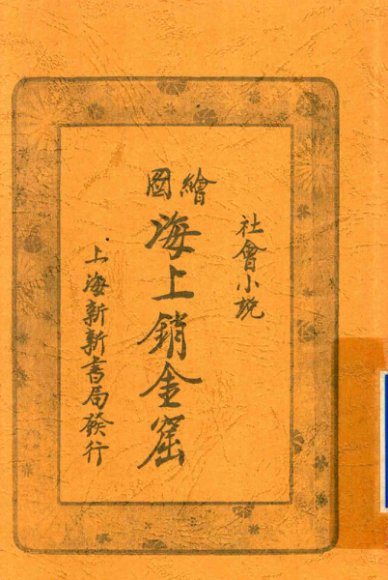 社會小説
繪圖
海上銷金窟
上海新新書局發行